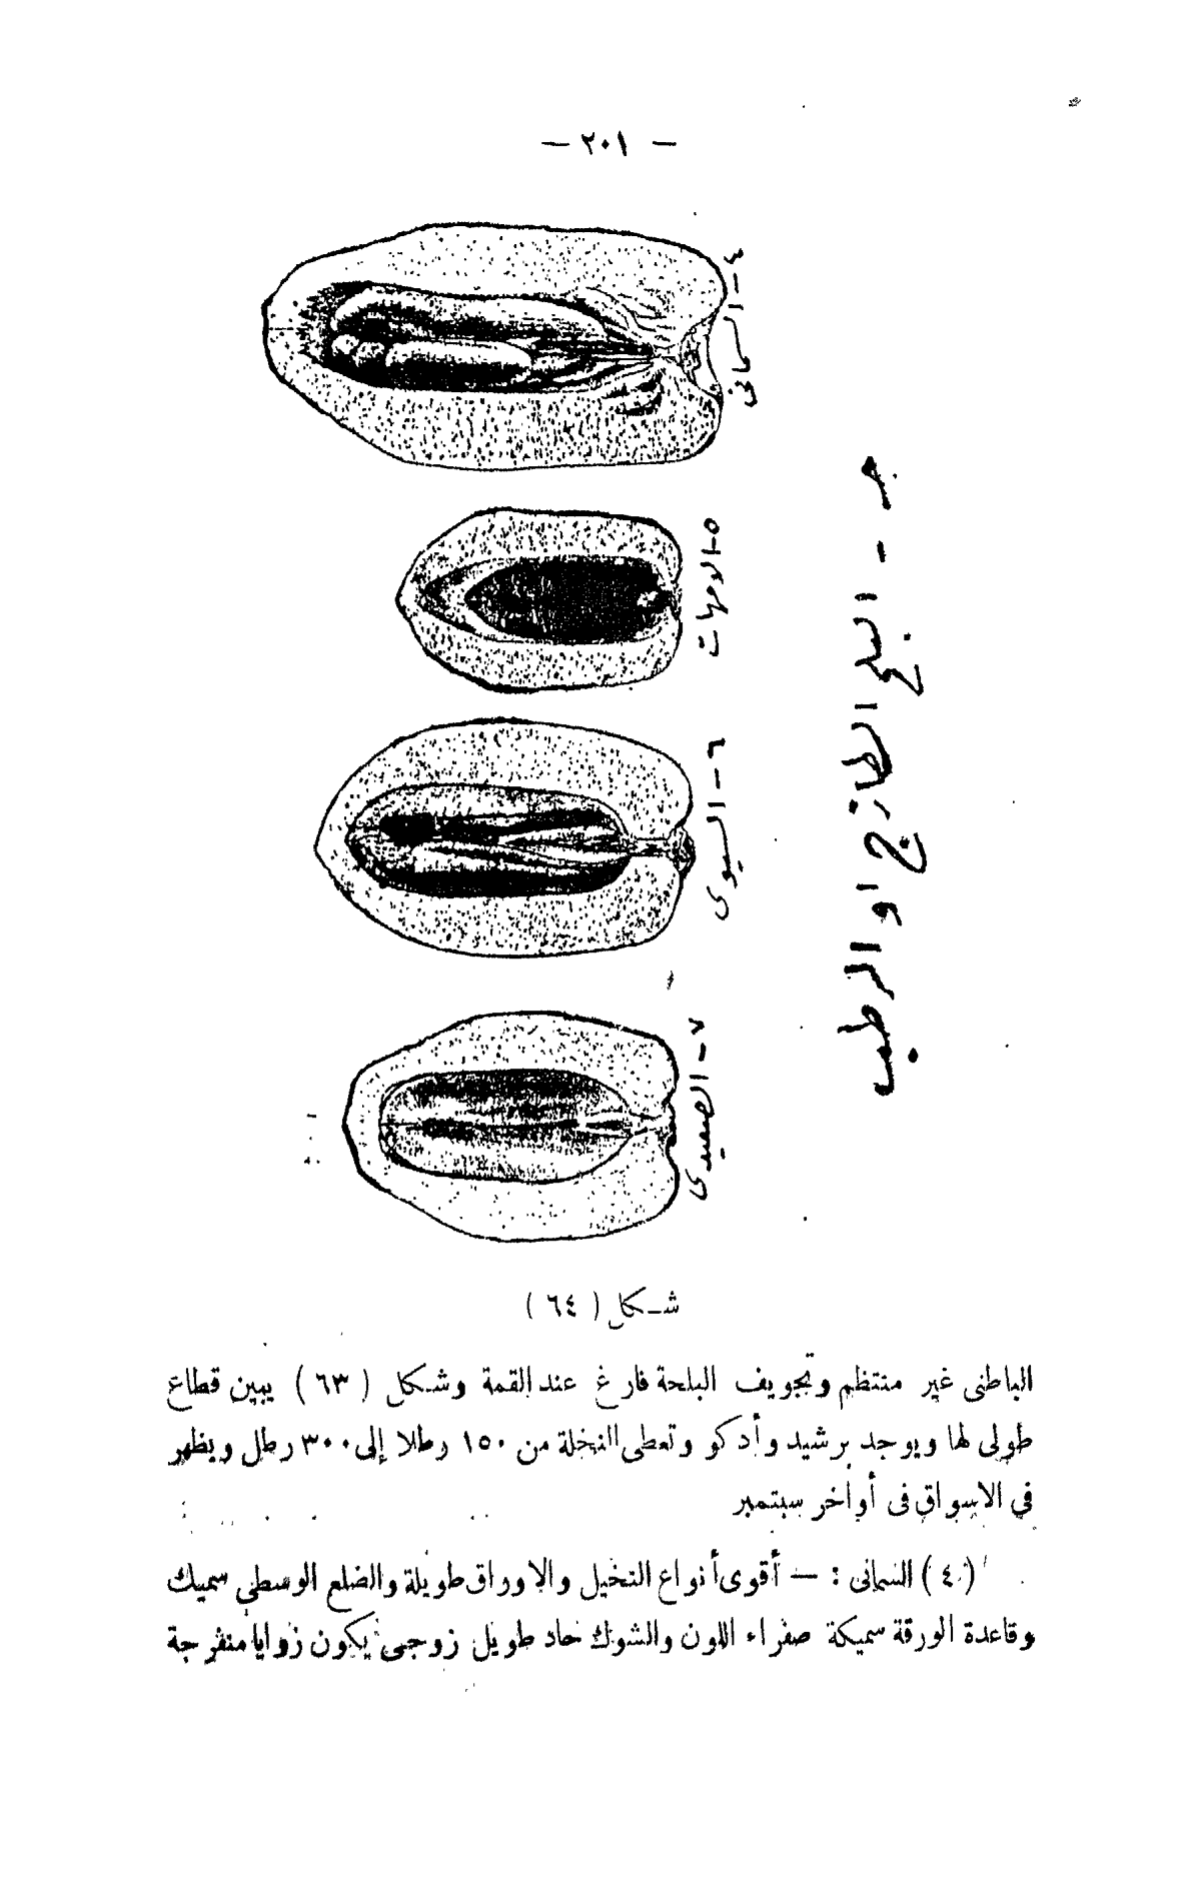 — ٢٠١ —
جـ - البلح الطازج او الرطب
٤ - السمانى
٥ - الامهات
٦ - السيوى
٧ - الصعيدى
شـكل ( ٦٤ )
الباطنى غير منتظم وتجويف البلحة فارغ عند القمة وشكل ( ٦٣ ) يبين قطاع
طولى لها ويوجد برشيد وأدكو وتعطى النخلة من ١٥٠ رطلا إلى ٣٠٠ رطل ويظهر
في الاسواق فى أواخر سبتمبر
( ٤ ) السمانى : — أقوى أنواع النخيل والاوراق طويلة والضلع الوسطى سميك
وقاعدة الورقة سميكة صفراء اللون والشوك حاد طويل زوجى يكون زوايا منفرجة